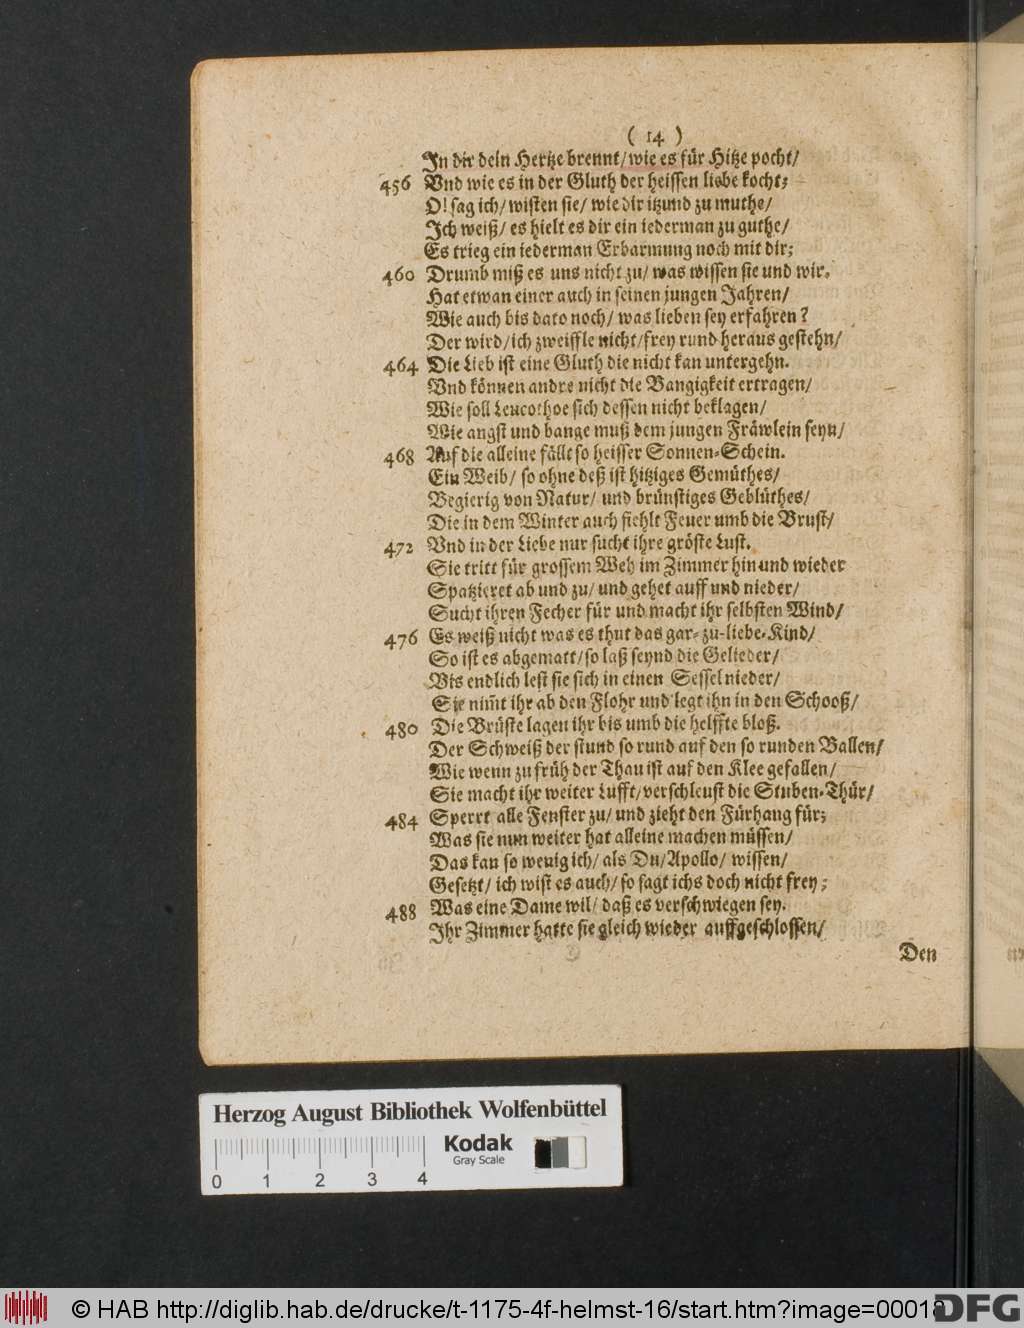 ( 14 )
In dir dein Hertze brennt/ wie es für Hitze pocht/
456 Vnd wie es in der Gluth der heissen liebe kocht;
O! sag ich/ wisten sie/ wie dir itzund zu muthe/
Ich weiß/ es hielt es dir ein iederman zu guthe/
Es trieg ein iederman Erbarmung noch mit dir;
460 Drumb miß es uns nicht zu/ was wissen sie und wir.
Hat etwan einer auch in seinen jungen Jahren/
Wie auch bis dato noch/ was lieben sey erfahren?
Der wird/ ich zweiffle nicht/ frey rund heraus gestehn/
464 Die Lieb ist eine Gluth die nicht kan untergehn.
Vnd können andre nicht die Bangigkeit ertragen/
Wie soll Leucothoe sich dessen nicht beklagen/
Wie angst und bange muß dem jungen Fräwlein seyn/
468 Auf die alleine fällt so heisser Sonnen-Schein.
Ein Weib/ so ohne deß ist hitziges Gemüthes/
Begierig von Natur/ und brünstiges Geblüthes/
Die in dem Winter auch fiehlt Feuer umb die Brust/
472 Vnd in der Liebe nur sucht ihre gröste Lust.
Sie tritt für grossem Weh im Zimmer hin und wieder
Spatzieret ab und zu/ und gehet auff und nieder/
Sucht ihren Fecher für und macht ihr selbsten Wind/
476 Es weiß nicht was es thut das gar-zu-liebe-Kind/
So ist es abgematt/ so laß seynd die Gelieder/
Bis endlich lest sie sich in einen Sessel nieder/
Sie nim̃t ihr ab den Flohr und legt ihn in den Schooß/
480 Die Brüste lagen ihr bis umb die helffte bloß.
Der Schweiß der stund so rund auf den so runden Ballen/
Wie wenn zu früh der Thau ist auf den Klee gefallen/
Sie macht ihr weiter Lufft/ verschleust die Stuben-Thür/
484 Sperrt alle Fenster zu/ und zieht den Fürhang für;
Was sie nun weiter hat alleine machen müssen/
Das kan so wenig ich/ als Du/ Apollo/ wissen/
Gesetzt/ ich wist es auch/ so sagt ichs doch nicht frey;
488 Was eine Dame wil/ daß es verschwiegen sey.
Ihr Zimmer hatte sie gleich wieder auffgeschlossen/
Den
Herzog August Bibliothek Wolfenbüttel
Kodak
Gray Scale
0 1 2 3 4
© HAB http://diglib.hab.de/drucke/t-1175-4f-helmst-16/start.htm?image=00018
DFG